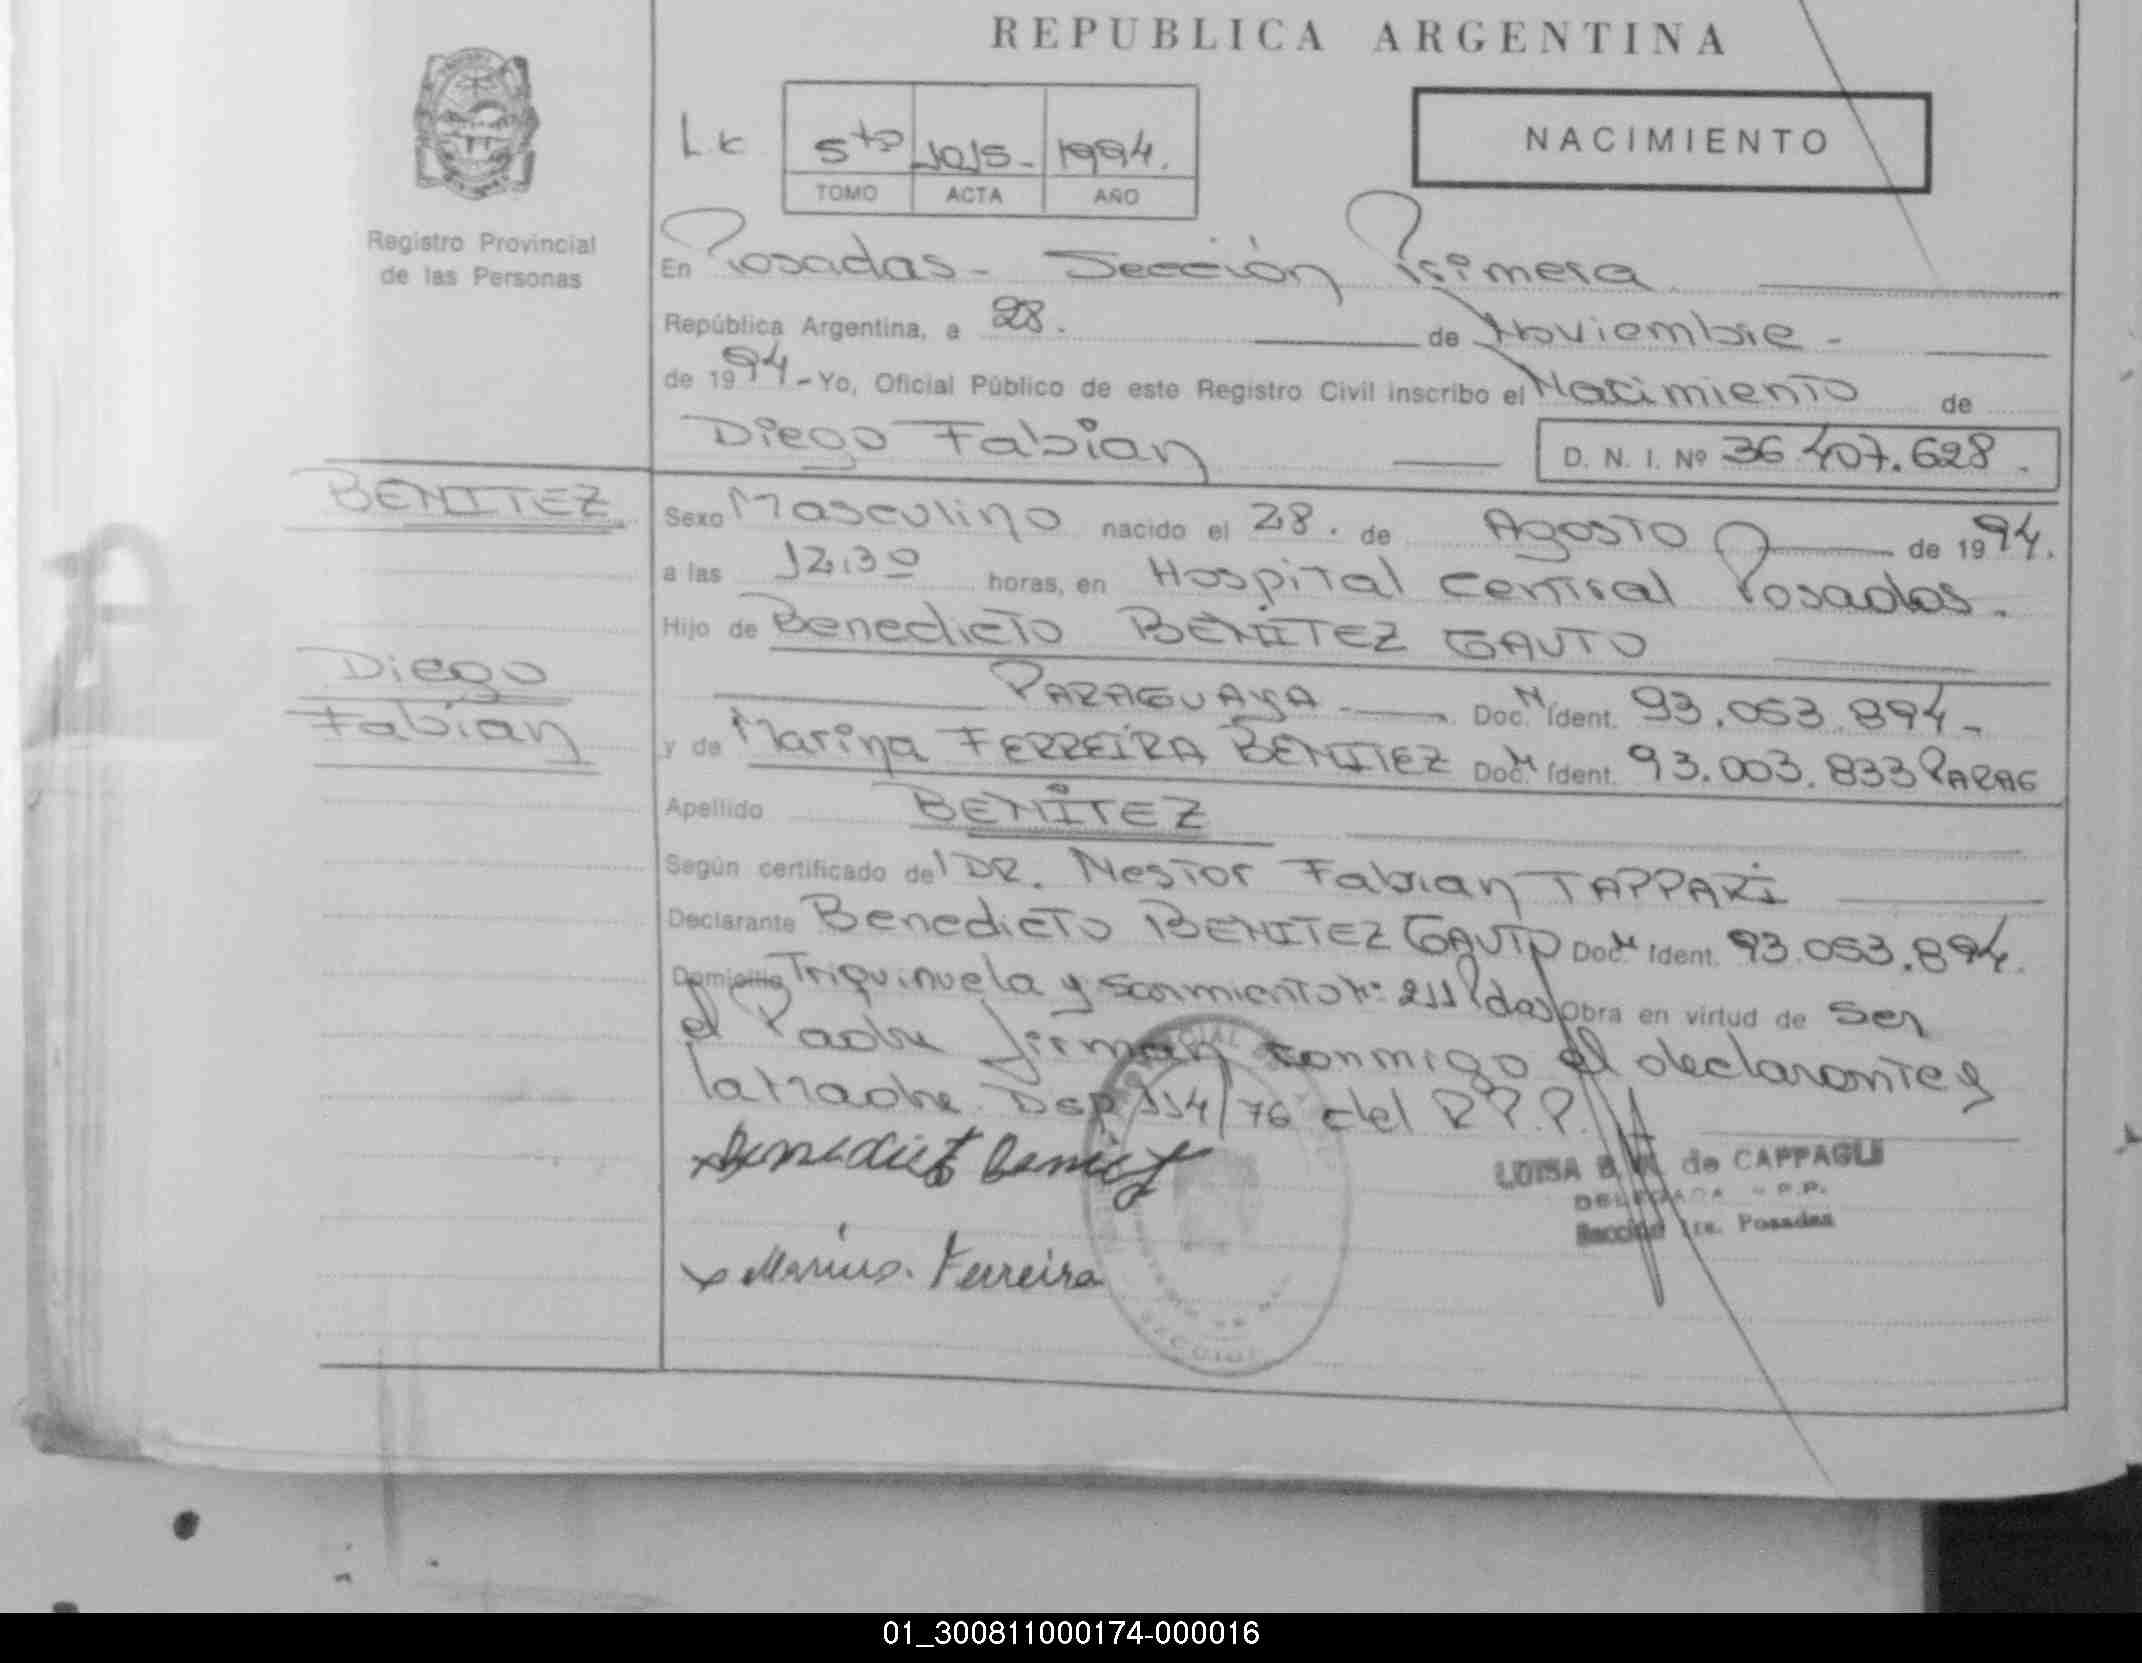 REPUBLICA ARGENTINA
NACIMIENTO
5to 1015- 1994.
TOMO ACTA AÑO
Registro Provincial
de las Personas
En Posadas- Sección Primera
República Argentina, a 28. de Noviembre-
de 1994-Yo, Oficial Público de este Registro Civil inscribo el Nacimiento de
Diego Fabian D. N. I. Nº 36.407.628.
BENITEZ
Diego
Fabian
Sexo Masculino nacido el 28. de Agosto de 1994.
a las 12,30 horas, en Hospital Central Posadas.
Hijo de Benedicto BENÍTEZ GAUTO
PARAGUAYA Doc. M Ident. 93.053.894-
y de Marina FERREIRA BENITEZ Doc. M Ident. 93.003.833 PARAG
Apellido BENÍTEZ
Según certificado del DR. Nestor Fabian TAPPARI
Declarante Benedicto BENITEZ GAUTO Doc. M Ident. 93.053.894.
Domicilio Triquinuela y Sarmiento Nº 211 Pdas obra en virtud de Ser
el Padre firman conmigo el declarante y
la Madre Dsp 114/76 del R.P.P.
Benedicto Benitez
Marina Ferreira
LUISA B. de CAPPAGLI
DELEGADA R.P.P.
Sección 1ra. Posadas
01_300811000174-000016